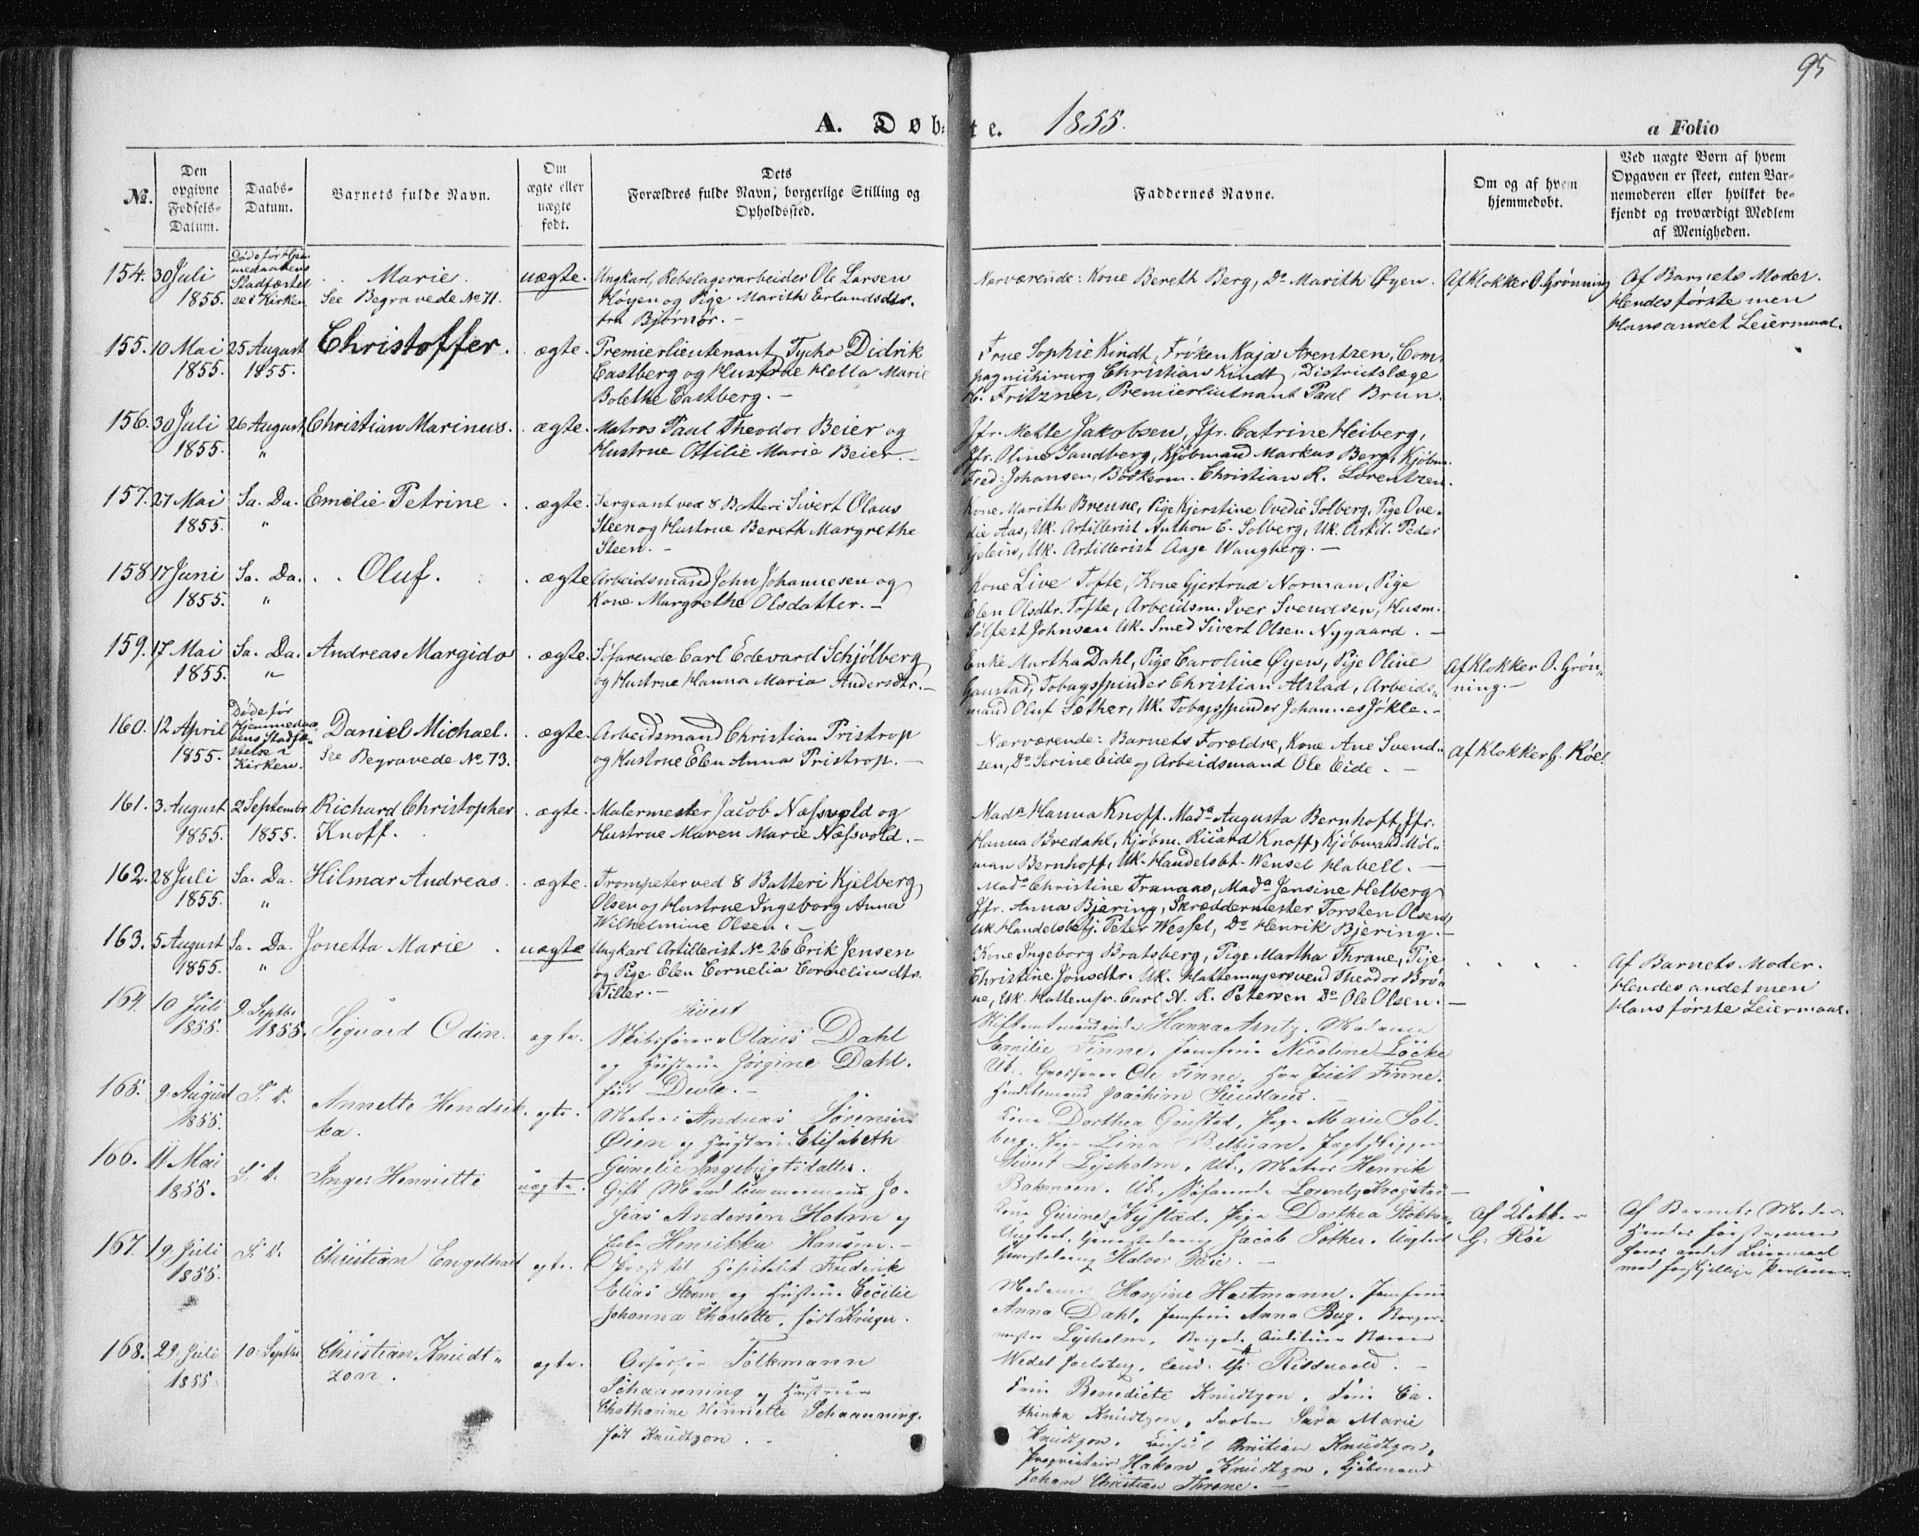 95
A. Døbte. 1855.
a Folio
No.
Den opgivne Fødsels-Datum.
Daabs-Datum.
Barnets fulde Navn.
Om ægte eller uægte født.
Dets Forældres fulde Navn, borgerlige Stilling og Opholdssted.
Faddernes Navne.
Om og af hvem hjemmedøbt.
Ved uægte Børn af hvem Opgaven er skeet, enten Barnemoderen eller hvilket bekjendt og troværdigt Medlem af Menigheden.
154. 30 Juli 1855.
Døde før Hjemmedaabens Stadfæstelse i Kirken
Marie.
See Begravede No 71.
uægte.
Ungkarl, Rebslagerarbeider Ole Larsen
Høyen og Pige Marith Erlandsdtr.
fra Bjørnør. —
Nærværende: Kone Bereth Berg, Do Marith Øyen.
Af Klokker O. Grønning
Af Barnets Moder.
Hendes første men
Hans andet Leiermaal.
155. 10 Mai 1855.
25 August 1855.
Christoffer.
ægte.
Premierlieutenant Tycho Didrik
Castberg og Hustrue Hella Marie
Bolethe Castberg. —
Frue Sophie Kindt, Frøken Kaja Arentzen, Com-
pagnichirurg Christian Kindt, Districtslæge
H. Fritzner, Premierlieutnant Paal Brun.
156. 30 Juli 1855.
26 August "
Christian Marinus.
ægte.
Matros Paal Theodor Beier og
Hustrue Ottilie Marie Beier. —
Jfr. Mette Jakobsen, Jfr. Catrine Heiberg,
Jfr. Oline Sandberg, Kjøbmand Markus Berg, Kjøbm.
Fred: Johansen, Bødkerm. Christian R. Lorentzen.
157. 27 Mai 1855.
Sa. Da. "
Emilie Petrine
ægte.
Sergeant ved 8 Batteri Sivert Olaus
Steen og Hustrue Bereth Margrethe
Steen. —
Kone Marith Brenne, Pige Kjerstine Ovedie Solberg, Pige Ove-
die Aas, Uk. Artillerist Anthon E. Solberg, Uk. Artil. Peder
Gelein, Uk. Artillerist Aage Wangberg. —
158 17 Juni 1855.
Sa. Da. "
Oluf.
ægte
Arbeidsmand John Johannesen og
Kone Margrethe Olsdatter. —
Kone Live Tofte, Kone Gjertrud Norman, Pige
Elen Olsdtr. Tofte, Arbeidsm. Iver Svendsen, Husm.
Sølfest Johnsen Uk. Smed Sivert Olsen Nygaard. —
159. 17 Mai 1855.
Sa. Da. "
Andreas Margido
ægte.
Søfarende Carl Edevard Schjølberg
og Hustrue Hanna Maria Andersdtr. —
Enke Martha Dahl, Pige Caroline Øyen, Pige Oline
Ganstad, Tobagsspinder Christian Alstad, Arbeids-
mand Oluf Sæther, Uk. Tobagsspinder Johannes Jøkle. —
Af Klokker O. Grøn-
ning. —
160. 12 April 1855.
Døde før Hjemmedaabens Stadfæstelse i Kirken.
Daniel Michael.
See Begravede No 73.
ægte.
Arbeidsmand Christian Pristrop
og Hustrue Elen Anna Pristrop. —
Nærværende: Barnets Forældre, Kone Ane Svend-
sen, Do Serine Eide og Arbeidsmand Ole Eide. —
Af Klokker G. Röe.
161. 3 August 1855.
2 Septembr 1855.
Richard Christopher
Knoff.
ægte.
Malermester Jacob Næssvold og
Hustrue Maren Marie Næssvold. —
Mada Hanna Knoff. Mada Augusta Bernhoft, Jfr.
Hanna Bredahl, Kjøbm. Ricard Knoff, Kjøbmand Möl-
man Bernhoff, Uk. Handelsbt. Wensel Habell. —
162. 28 Juli 1855.
Sa. Da. "
Hilmar Andreas.
ægte.
Trompeter ved 8 Batteri Kjelberg
Olsen og Hustrue Ingeborg Anna
Wilhelmine Olsen. —
Mada Christine Tranaas, Mada Jensine Helberg
Jfr. Anna Bjering, Skræddermester Torsten Olsen,
Uk Handelsbetj. Peter Wessel, Do Henrik Bjering. —
163. 5 August 1855.
Sa. Da. "
Jonetta Marie
uægte
Ungkarl Artillerist No 26 Erik Jensen
og Pige Elen Cornelia Corneliusdtr.
Tiller. —
Kone Ingeborg Bratsberg, Pige Martha Thrane, Pige
Christine Jonsdtr. Uk. Hattemagersvend Theodor Brö-
ne, Uk. Hattemsv. Carl N. R. Petersen Do Ole Olsen. —
Af Barnets Moder.
Hendes andet men
Hans første Leiermaal.
164. 10 Juli 1855.
9 Septbr 1855.
Siguard Odin.
ægte.
Sivert
Skibsfører Olaus Dahl
og Hustrue Jørgine Dahl.
født Deule. —
Hanna Arntz. Madame
Emilie Finne, Jomfrue Nicoline Löcke
Uk. Ole Finne, Herr Juul Finne.
Handelsmand Joachim
165. 9 August 1855.
S. D.
Annette Hendrik-
ka.
egte.
Matros Andreas Sørensen
Øien og Hustrue Elisabeth
Gurnelie Ingebrigtsdatter.
Kone Dorthea Ganstad, Pige Marie Sol-
berg, Pige Lina Bellman,
Sivert Lysholm. Uk. Matros Henrik
Bakmoen. Uk. Søfarende Lorentz Krogstad —
166. 11 Mai 1855.
S. D.
Inger Henriette
uægte.
Gift Mand Tømmermand Jo-
seas Andersen Holm og
Enke Henrikka Hansen. —
Kone Gurine Kystad, Pige Dorthea Stokkan,
Ungkarl Jacob Sother, Ungkarl
Halvor Röe. —
Af Klokker
G. Röe
Af Barnets Moder
Hendes første men
hans andet Leiermaal
med forskjellige Personer.
167. 19 Juli 1855.
S. D.
Christian Engelhart
egte.
Præst til Hospitalet Frederik
Elias Strøm og Hustrue Cecilie
Johanna Charlotte, født Krüger.
Madame Hansine Hartmann. Jomfrue
Anna Dahl, Jomfrue Anna Berg. Borger-
mester Lysholm, Brigade Auditeur Baron
Wedel Jarlsberg, Cand. Riddervold. —
168. 29 Juli 1855
10 Septbr
Christian Knudt-
zon.
egte.
Assessor Folkmann
Schaanning og Hustrue
Chatharine Henriette Schaanning.
født Knudtzon.
Frue Benedicte Knudtzon, Frue Ca-
thinka Knudtzon, Frøken Sara Marie
Knudtzon. Consul Christian Knudtzon,
Proprietair Hakon Knudtzon, Kjøbmand
Johan Christian Thrane. —